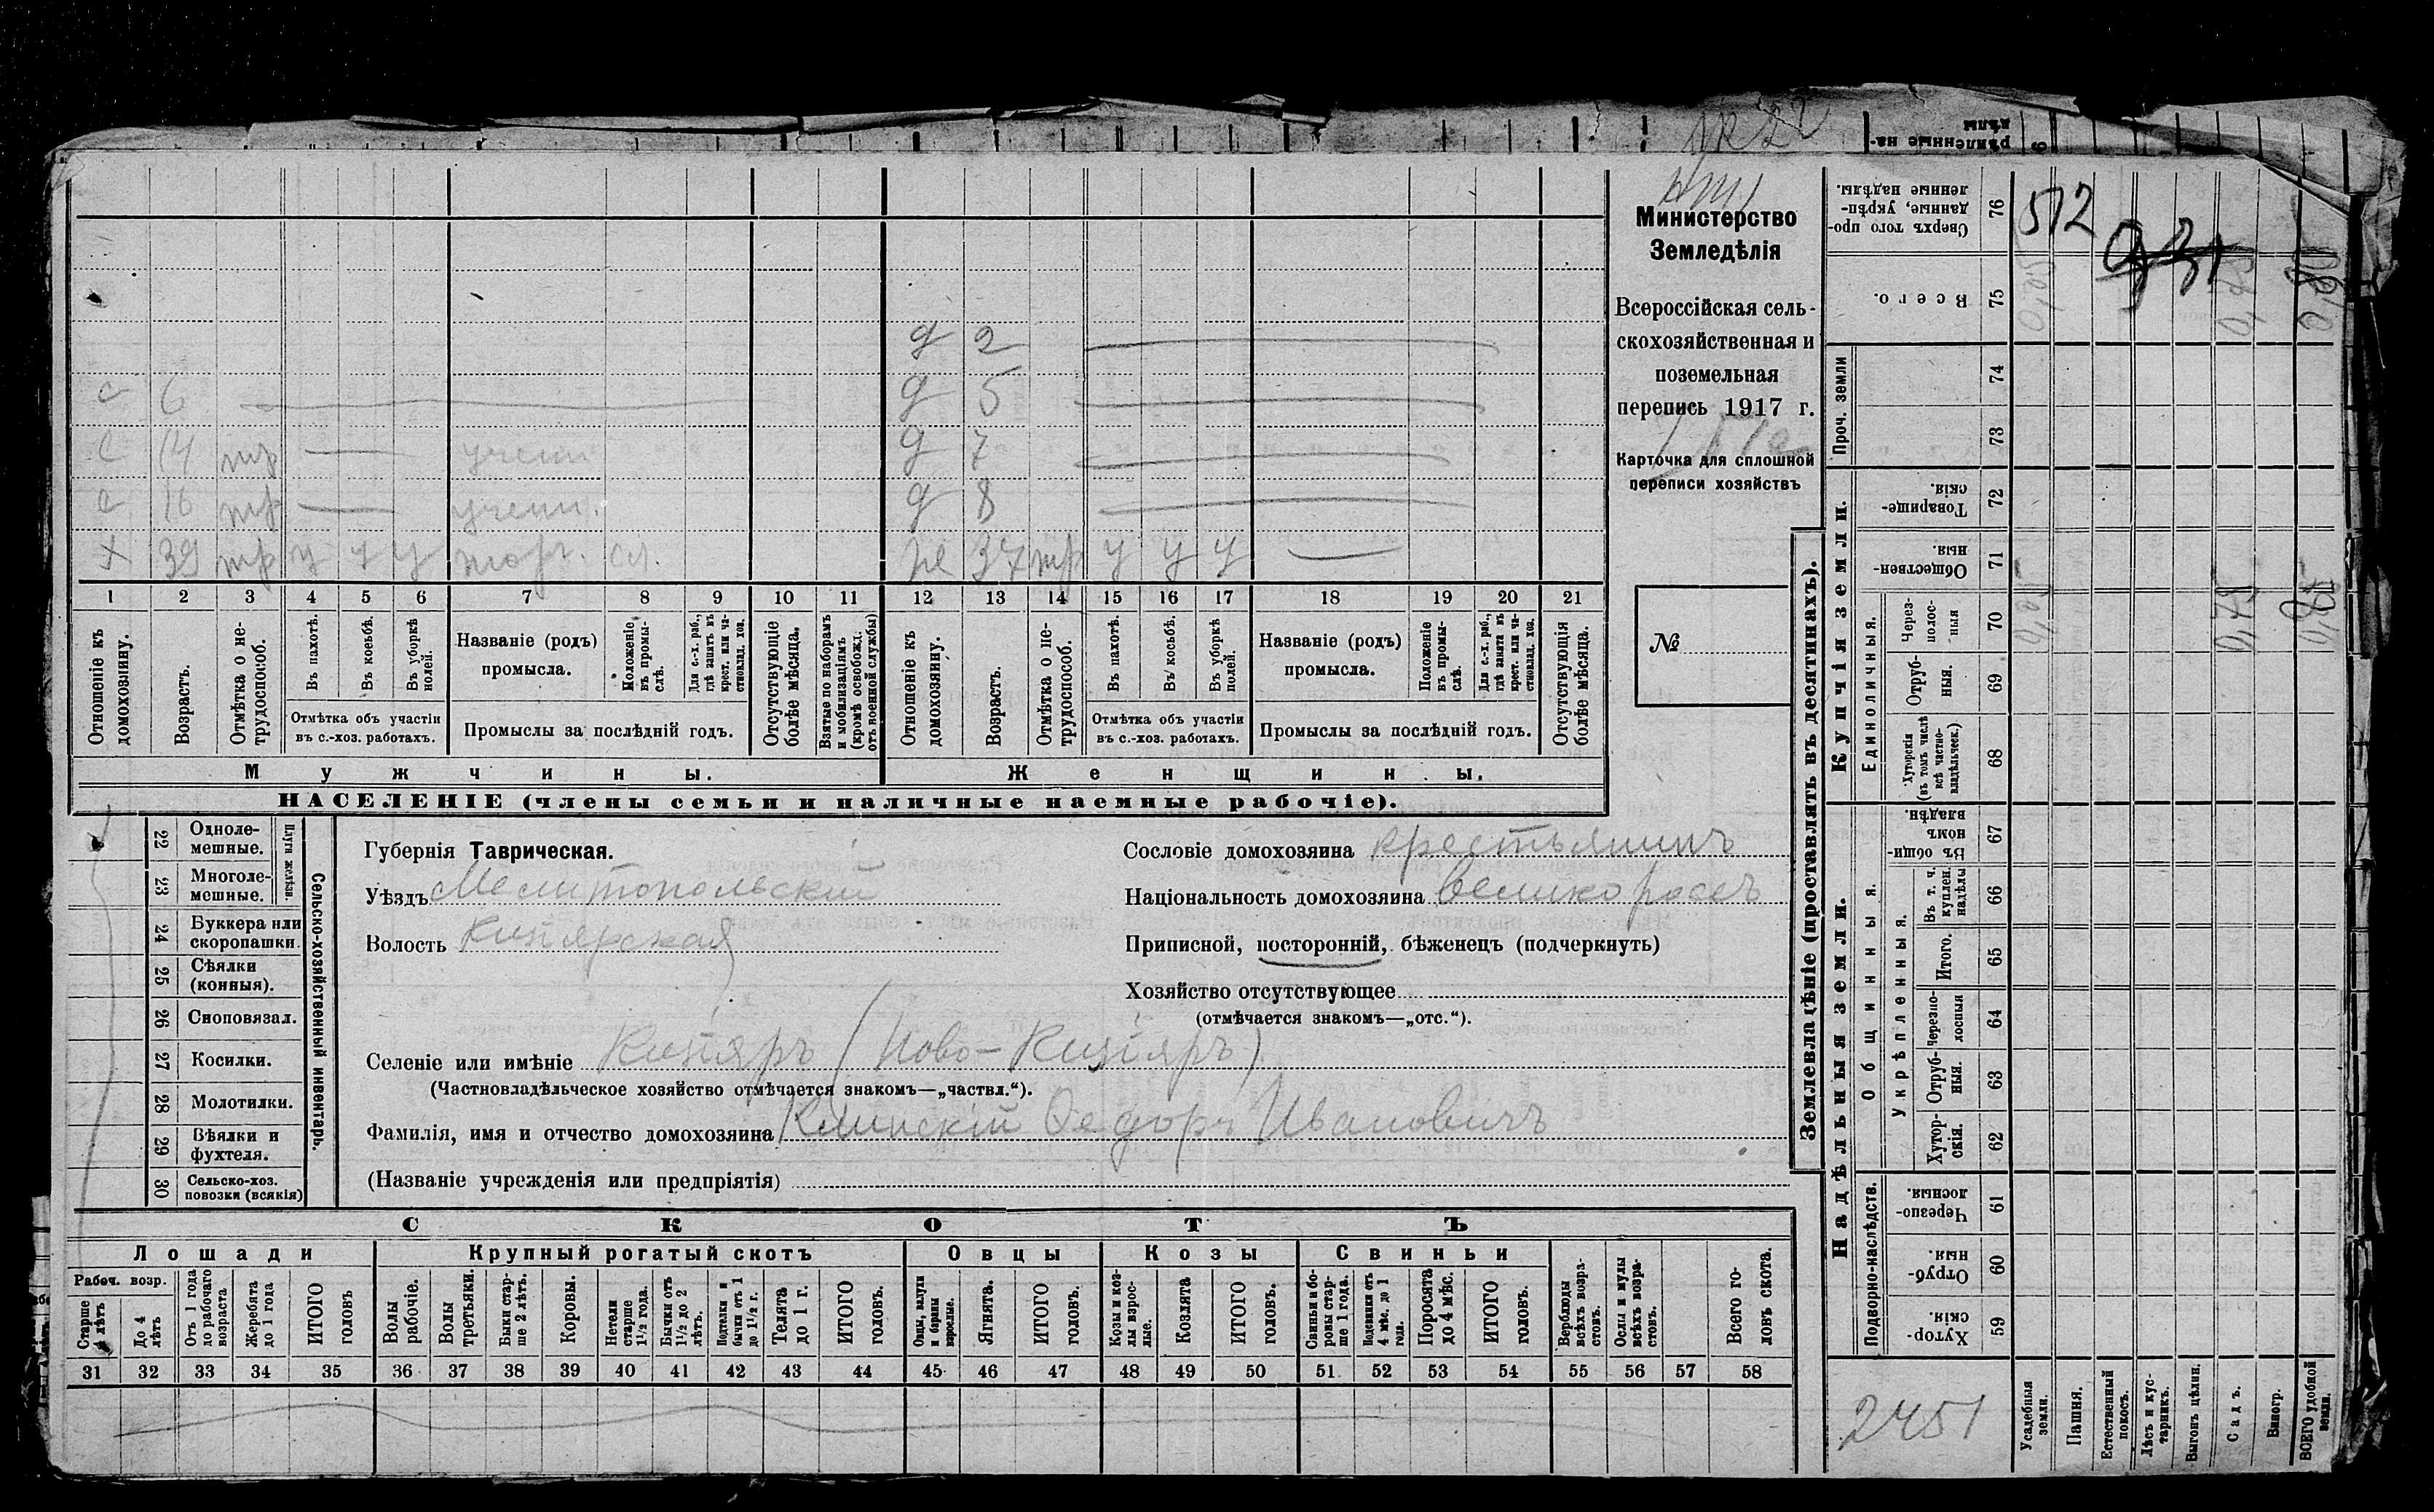 512
Министерство
Земледѣлія
Всероссійская сель-
скохозяйственная и
поземельная
перепись 1917 г.
Карточка для сплошной
переписи хозяйствъ
№
д 2
с 6 д 5
с 14 тр учени д 7
с 16 тр учени. д 8
х 39 тр у у у торг. сл. же 37 тр у у у
1 2 3 4 5 6 7 8 9 10 11 12 13 14 15 16 17 18 19 20 21
Отношеніе къ домохозяину.
Возрастъ.
Отмѣтка о не-трудоспособ.
Въ пахотѣ.
Въ косьбѣ.
Въ уборкѣ полей.
Отмѣтка объ участіи
въ с.-хоз. работахъ.
Названіе (родъ)
промысла.
Положеніе въ промы-слѣ.
Для с.-х. раб., гдѣ занятъ въ крест. или ча-стновлад. хоз.
Промыслы за послѣдній годъ.
Отсутствующіе болѣе мѣсяца.
Взятые по наборамъ и мобилизаціямъ (кромѣ освобожд. отъ военной службы)
Отношеніе къ домохозяину.
Возрастъ.
Отмѣтка о не-трудоспособ.
Въ пахотѣ.
Въ косьбѣ.
Въ уборкѣ полей.
Отмѣтка объ участіи
въ с.-хоз. работахъ.
Названіе (родъ)
промысла.
Положеніе въ промы-слѣ.
Для с.-х. раб., гдѣ занятъ въ крест. или ча-стновлад. хоз.
Промыслы за послѣдній годъ.
Отсутствующія болѣе мѣсяца.
Мужчины. Женщины.
НАСЕЛЕНІЕ (члены семьи и наличные наемные рабочіе).
Сельско-хозяйственный инвентарь.
Плуги желѣзн.
22 Одноле-мешные.
23 Многоле-мешные.
24 Буккера или скоропашки.
25 Сѣялки (конныя).
26 Сноповязал.
27 Косилки.
28 Молотилки.
29 Вѣялки и фухтеля.
30 Сельско-хоз. повозки (всякія)
Губернія Таврическая.
Уѣздъ Мелитопольскій
Волость Кизіярская
Сословіе домохозяина крестьянинъ
Національность домохозяина великороссъ
Приписной, посторонній, бѣженецъ (подчеркнуть)
Хозяйство отсутствующее
(отмѣчается знакомъ—„отс.“).
Селеніе или имѣніе Кизіяръ (Ново-Кизіяръ)
(Частновладѣльческое хозяйство отмѣчается знакомъ—„частвл.“).
Фамилія, имя и отчество домохозяина Клинскій Федоръ Ивановичъ
(Названіе учрежденія или предпріятія)
СКОТЪ
Лошади Крупный рогатый скотъ Овцы Козы Свиньи
Рабоч. возр.
Старше 4 лѣтъ
До 4 лѣтъ
Отъ 1 года до рабочаго возраста
Жеребята до 1 года
ИТОГО головъ
Волы рабочіе.
Волы третьяки.
Быки стар-ше 2 лѣтъ.
Коровы.
Нетели старше 1½ года.
Бычки отъ 1½ до 2 лѣтъ.
Подтелки и бычки отъ 1 до 1½ г.
Телята до 1 г.
ИТОГО головъ.
Овцы, валухи и бараны взрослые.
Ягнята.
ИТОГО головъ.
Козы и коз-лы взрос-лые.
Козлята
ИТОГО головъ.
Свиньи и бо-ровы стар-ше 1 года.
Подсвинки отъ 4 мѣс. до 1 года.
Поросята до 4 мѣс.
ИТОГО головъ.
Верблюды всѣхъ возра-стовъ.
Ослы и мулы всѣхъ возра-стовъ.
Всего го-ловъ скота.
31 32 33 34 35 36 37 38 39 40 41 42 43 44 45 46 47 48 49 50 51 52 53 54 55 56 57 58
Землевладѣніе (проставлять въ десятинахъ).
Купчія земли.
Проч. земли
Надѣльныя земли.
Единоличныя.
Общинныя.
Укрѣпленныя.
Подворно-наслѣдств.
76 Сверхъ того про-данные, укрѣп-ленные надѣлы.
75 Всего. 0,05 0,75 0,80
74
73
72 Товарище-скія.
71 Обществен-ныя.
70 Через-полос-ныя 0,05 0,75
69 Отруб-ныя.
68 Хуторскія (въ томъ числѣ всѣ частно-владѣльческ.)
67 Въ общи-номъ владѣн.
66 Въ т. ч. куплен. надѣлы
65 Итого.
64 Черезпо-лосныя
63 Отруб-ныя.
62 Хутор-скія.
61 Черезпо-лосныя.
60 Отруб-ныя.
59 Хутор-скія
2451
Усадебныя земли.
Пашня.
Естественный покосъ.
Лѣсъ и кус-тарникъ.
Выгонъ цѣлин.
Садъ.
Виногр.
ВСЕГО удобной земли.